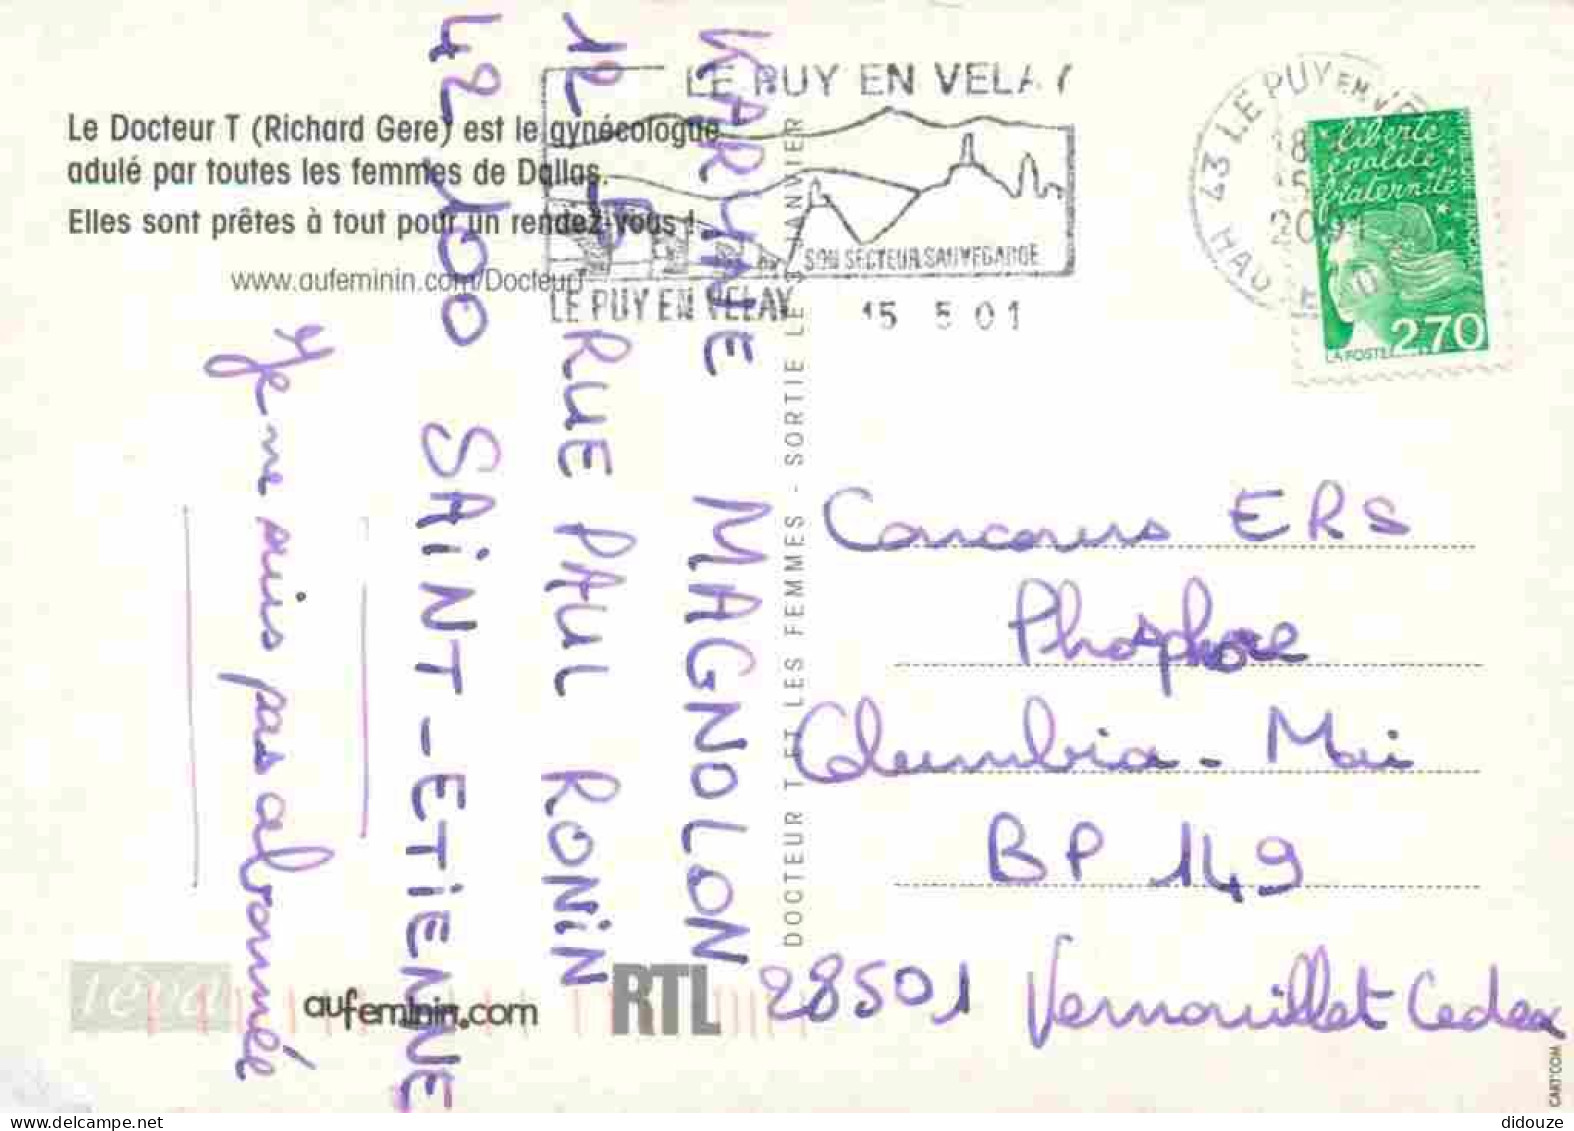 Le Docteur T (Richard Gere) est le gynécologue
adulé par toutes les femmes de Dallas.
Elles sont prêtes à tout pour un rendez-vous !
www.aufeminin.com/DocteurT
LE PUY EN VELAY
SON SECTEUR SAUVEGARDE
LE PUY EN VELAY
15 5 01
43 LE PUY EN
18
15
2001
liberté
égalité
fraternité
2,70
LA POSTE
KARYNE MAGNOLON
12 RUE PAUL RONIN
42 100 SAINT-ETIENNE
Je ne suis pas abonnée
DOCTEUR T ET LES FEMMES - SORTIE LE 3 JANVIER
Concours ERS
Phosphore
Columbia - Mai
BP 149
28501 Vernouillet Cedex
aufeminin.com
RTL
CART'COM
delcampe.net
didouze